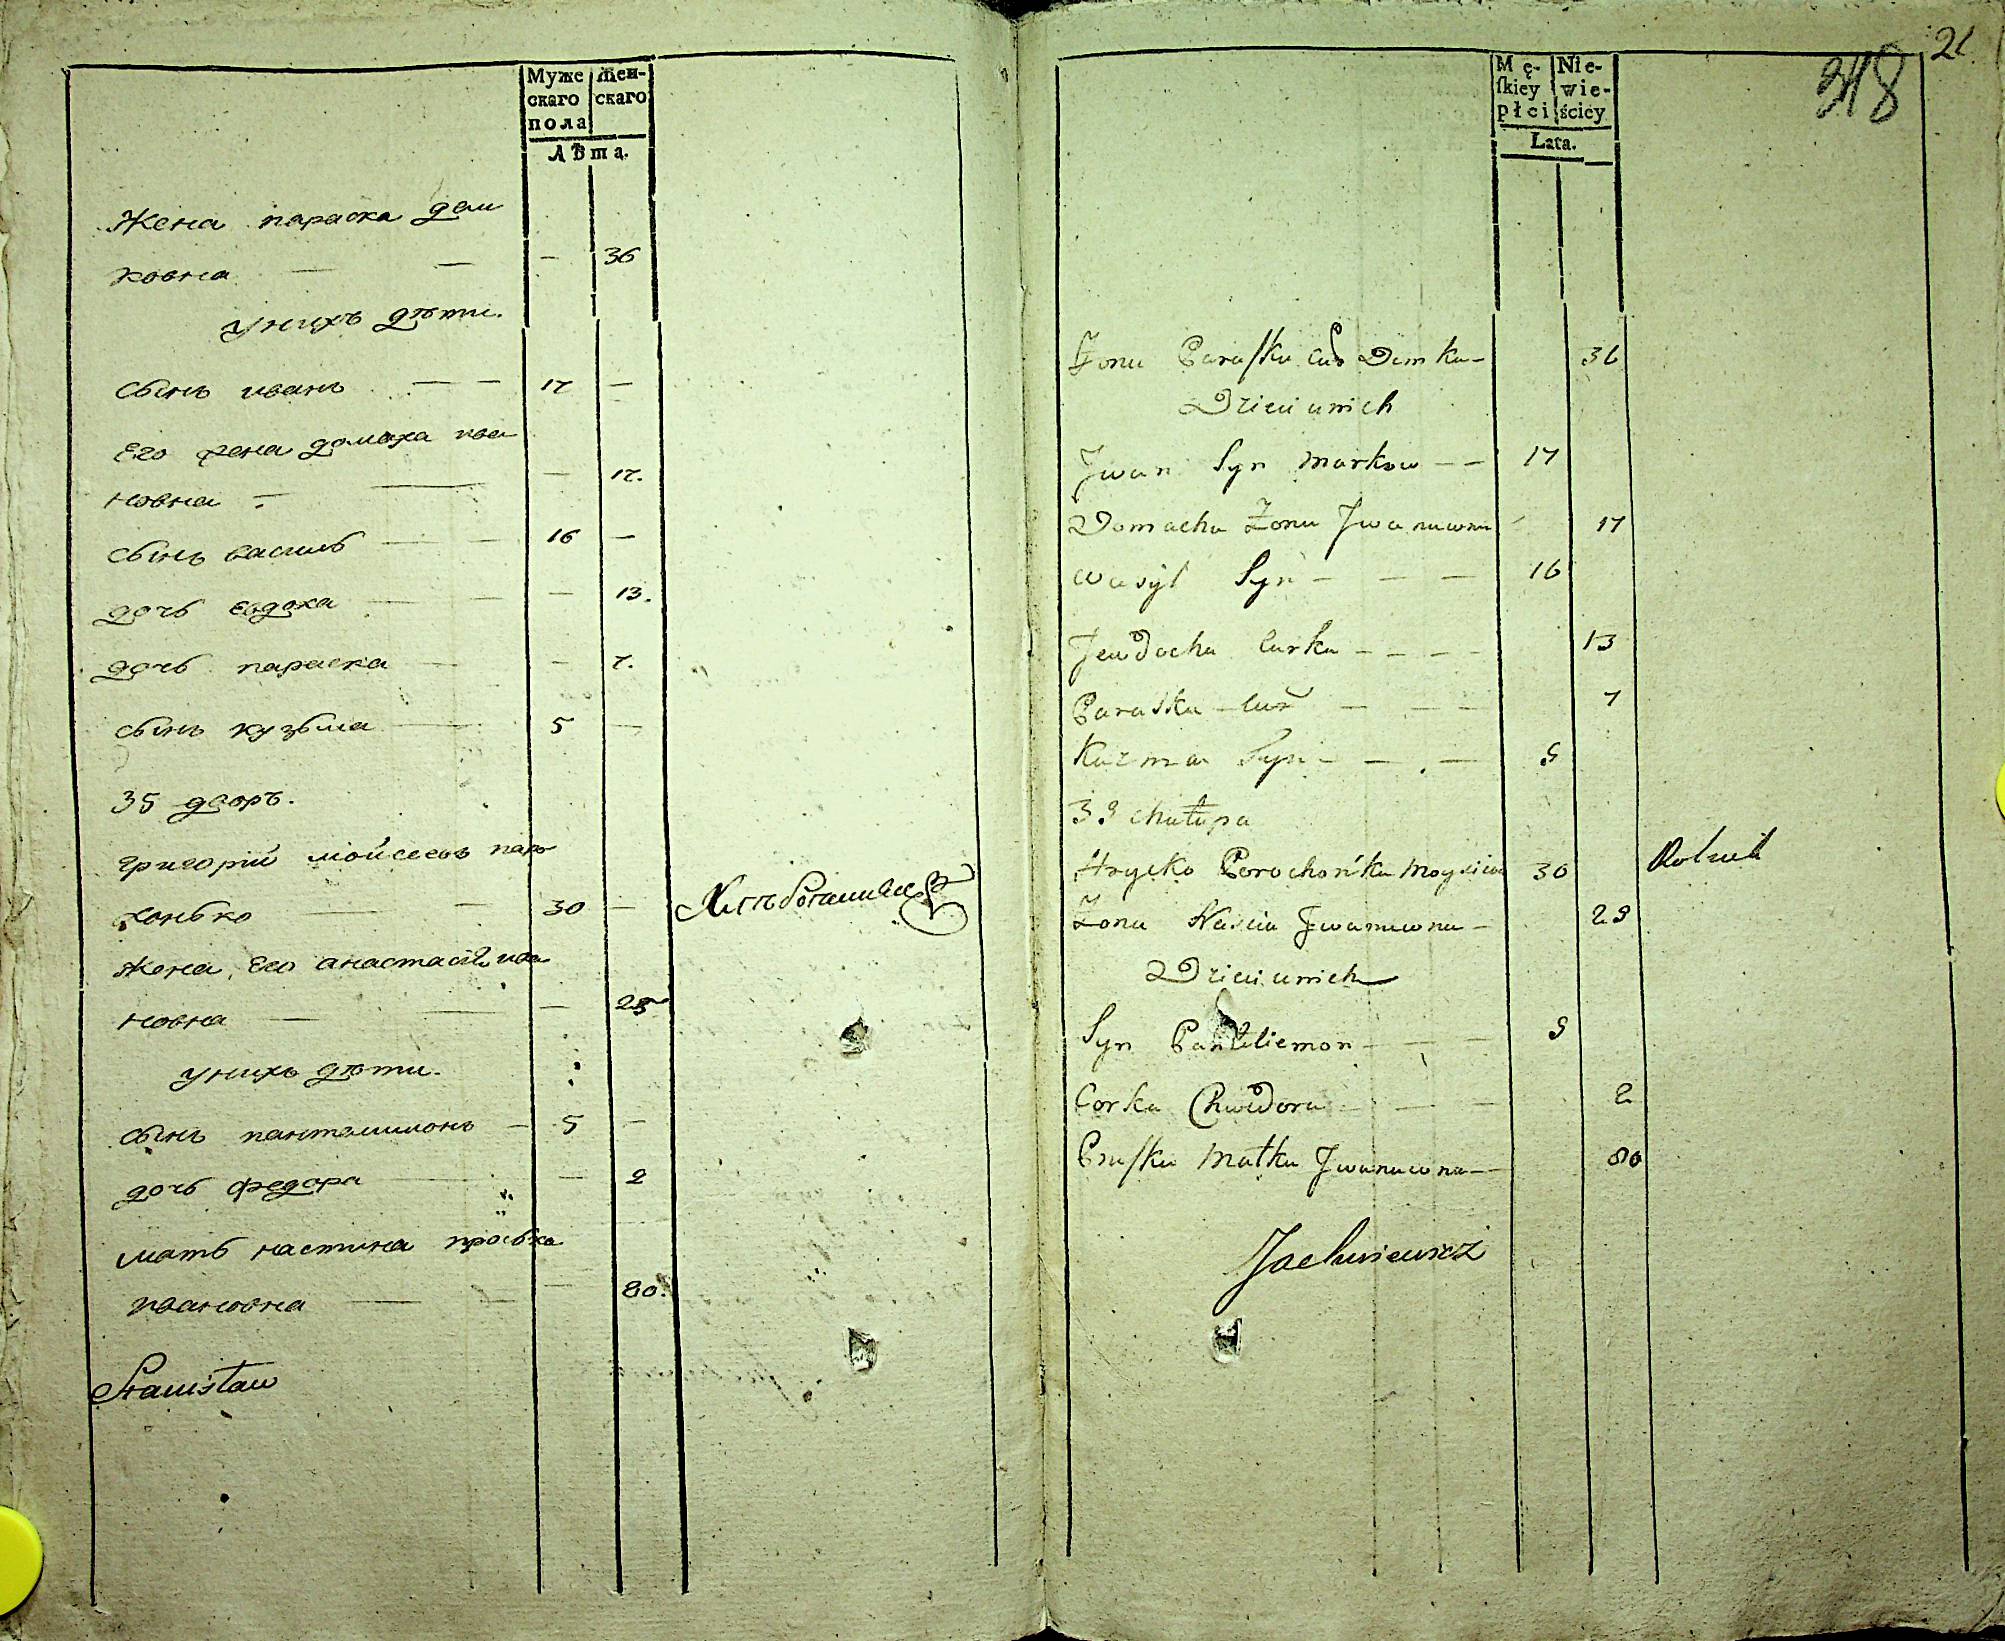 Муже
скаго
пола
Жен-
скаго
Лѣта.
Жена параска дем
ковна — — — 36
у нихъ дѣти.
сынъ иванъ — — 17 —
Его жена домаха ива
новна — — — 17.
сынъ василь — — 16 —
дочь евдоха — — — 13.
дочь параска — — 7.
сынъ кузьма — 5 —
35 дворъ.
григорій мойсеевъ паро
хонько — — 30 —
жена Его анастасія ива
новна — — — 25
у нихъ дѣти.
сынъ пантелимонъ — 5 —
дочь федора — — 2
мать настина проська
ивановна — — — 80.
Stanisław
21
318
Mę-
ſkiey
płci
Nie-
wie-
ściey
Lata.
Żona Paraſka Cur Demka — 36
Dzieci unich
Jwan Syn Markow — — 17
Domacha Żona Jwanuwna 17
Wasyl Syn — — — 16
Jewdocha Curka — — — — 13
Paraska Cur — — — 7
Kuzma Syn — — — 5
35 Chałupa
Hrycko Porochońko Moysiiow 30 Rolnik
Żona Nascia Jwanuwna — 25
Dzieci unich
Syn Panteliemon — — — 5
Corka Chwedora — — — 2
Praſka Matka Jwanuwna — 80
Jachniewicz